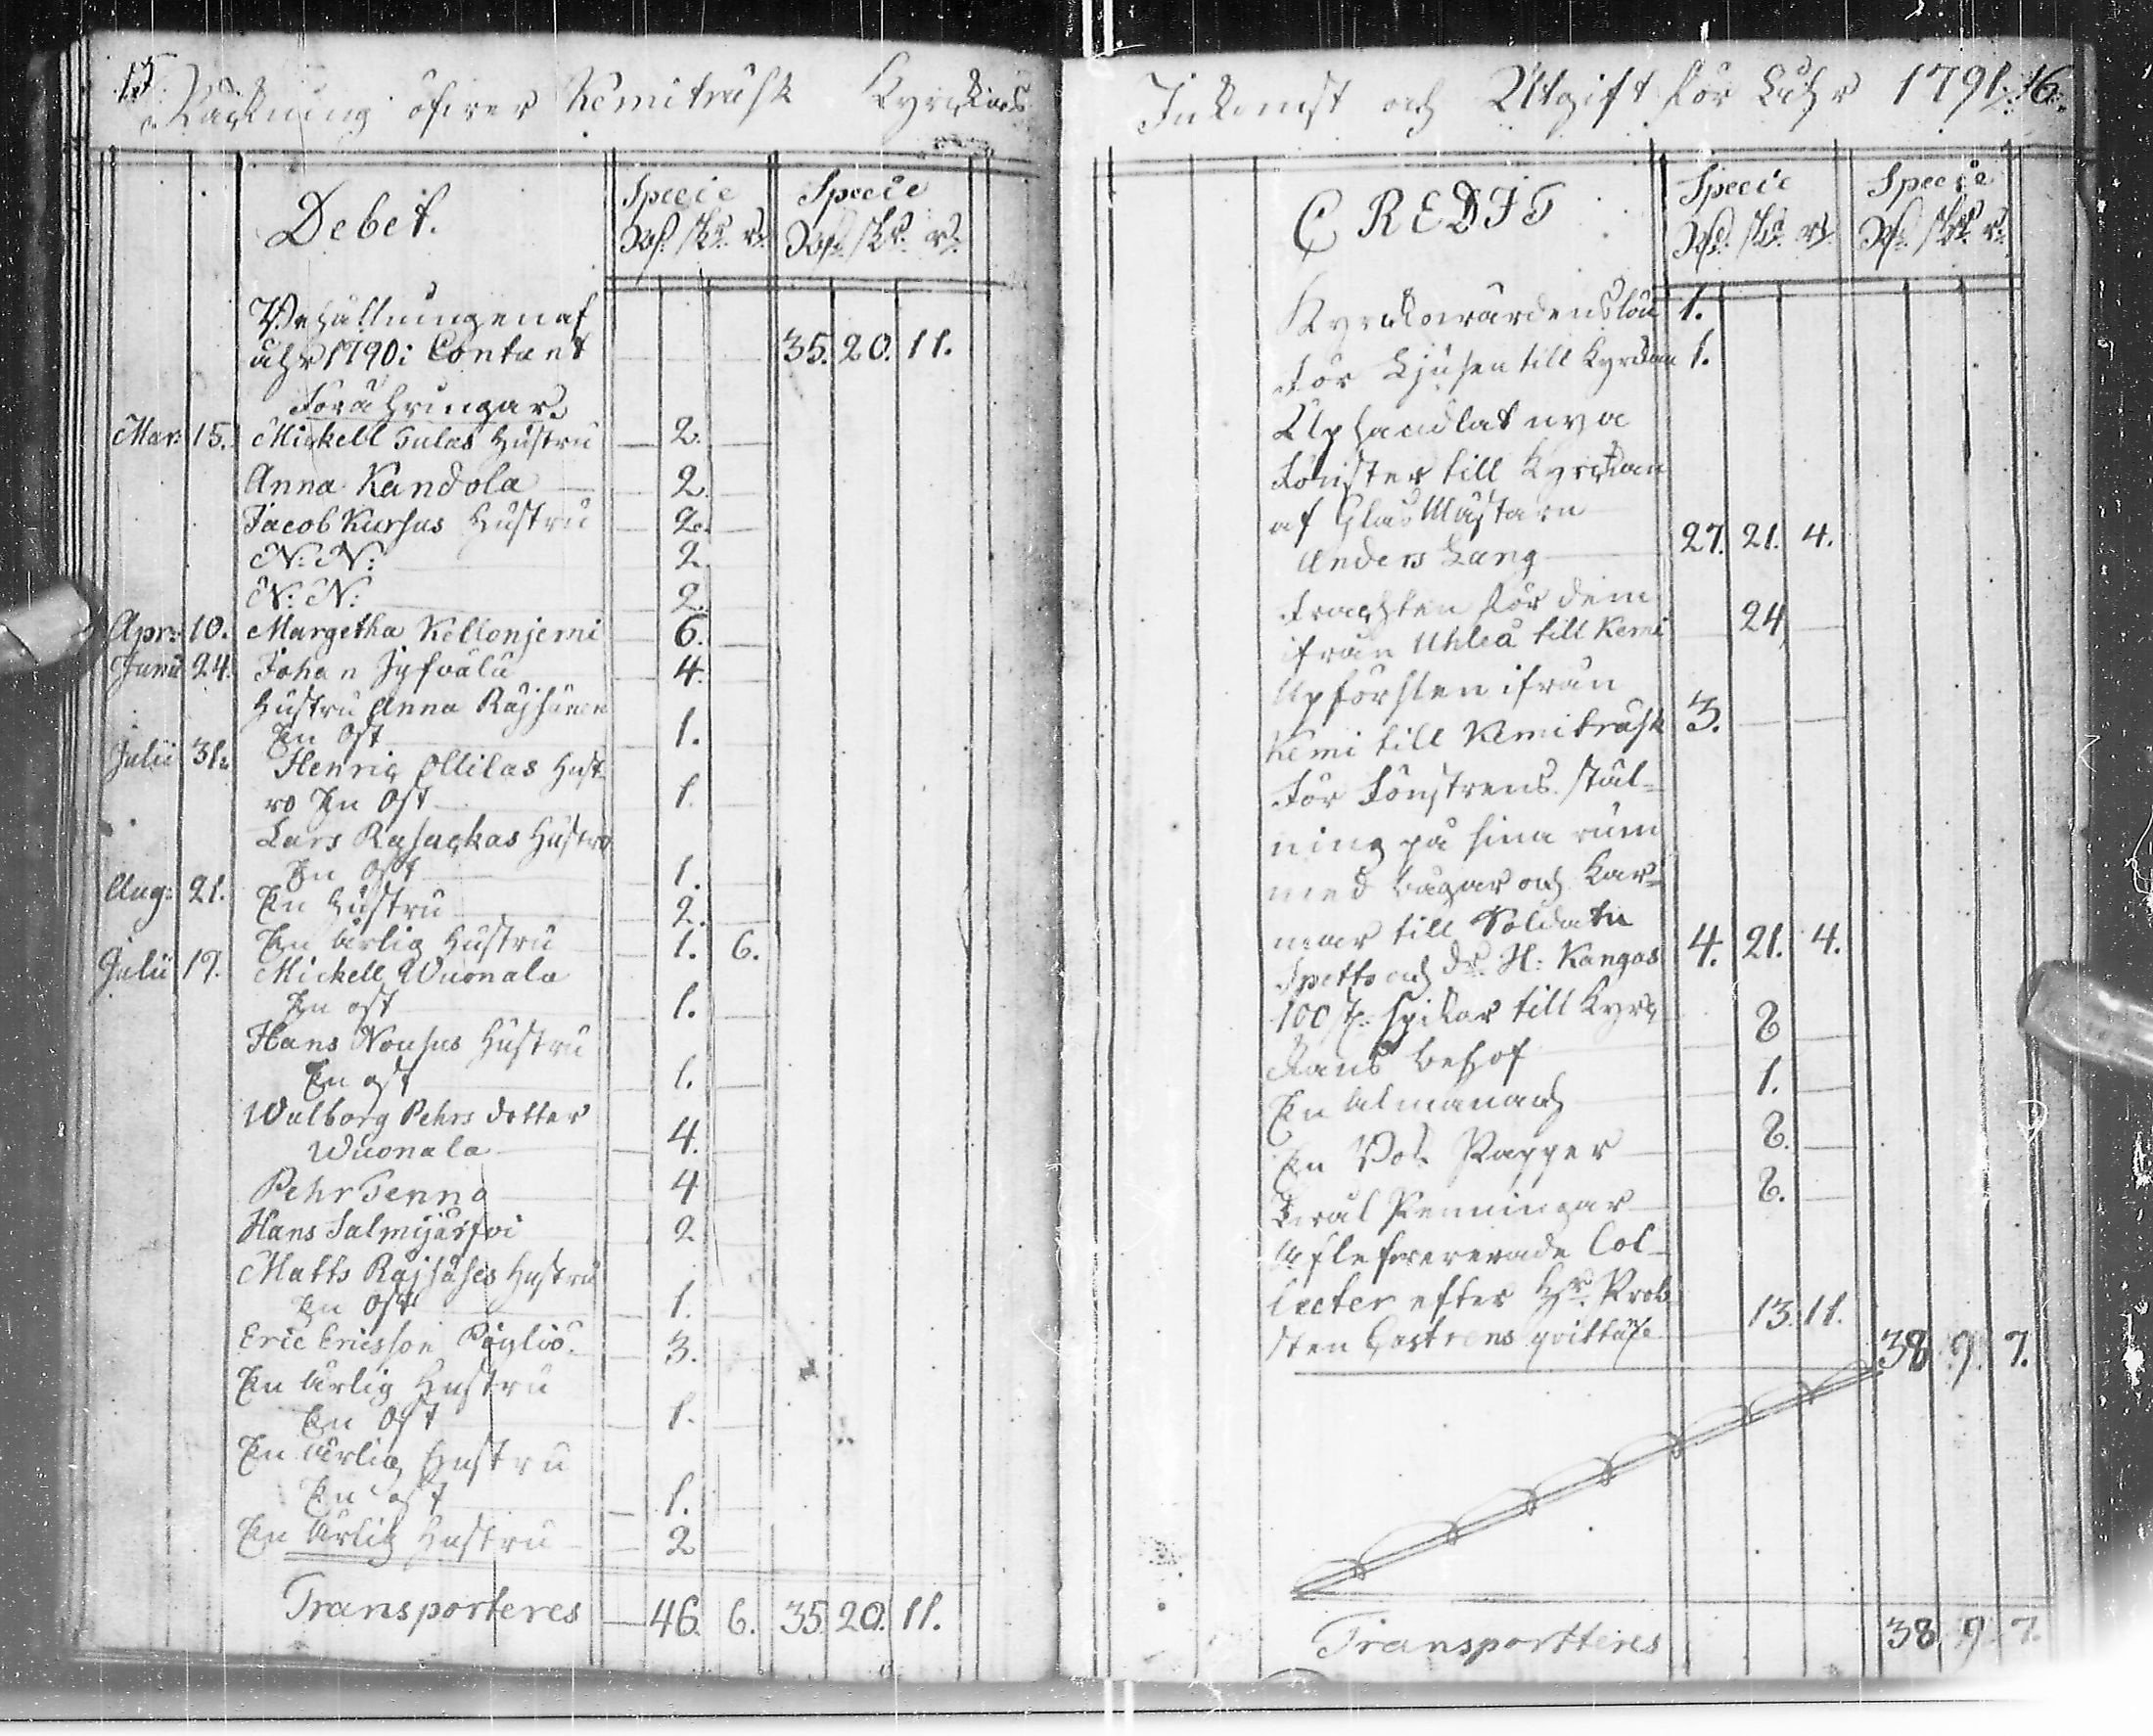 15
Räckning öfwer Kemiträsk Kyrckians
Debet.
Specie
Specie
Rd. sk. r.
Rd. sk. r.
Behållningen af
åhr 1790: Contant 35. 20. 11.
Förähringar.
Mar: 15. Mickell Tulas Hustru 2.
Anna Kandola 2.
Jacob Kursus Hustru 2.
N: N: 2.
N: N: 2.
Apr: 10. Margetha Kellonjemi 6.
Junii 24. Johan Jyfvälä 4.
Hustru Anna Räjsänen
En Ost 1.
Julii 31. Henric Ollilas Hust-
ro En Ost 1.
Lars Rasackas Hustro
En Ost 1.
Aug: 21. En Hustru 2.
En ärlig Hustru 1. 6.
Julii 19. Mickell Wuonala
En ost 1.
Hans Nousus Hustru
En ost 1.
Walborg Pehrs dotter
Wuonala 4.
Pehr Tenno 4
Hans Salmijärfvi 2
Matts Räjsäses Hustru
En Ost 1.
Eric Ericsson 3.
En ärlig Hustru
En Ost 1.
En ärlig Hustru
En ost 1.
En ärlig Hustru 2
Transporteres 46. 6. 35. 20. 11.
Inkomst och Utgift för åhr 1791. 16.
CREDIT
Specie
Specie
Rd. sk. r.
Rd. sk. r.
Kyrckowärdens lön 1.
För Ljusen till Kyrckan 1.
Uphandlat nya
Fönster till Kyrckan
af Glas Mästarn
Anders Lang 27. 21. 4.
Frachten för dem
ifrån Uhleå till Kemi 24
Upförslen ifrån
Kemi till Kemiträsk 3.
För Fönstrens stäl-
ning på sina rum
med bågar och Kar-
mar till Soldatn
Spetts och dr. H: Kangas 4. 21. 4.
100 st. spikar till Kyrc-
kans behof 8
En almanach 1.
En Bok Papper 8.
Penningar 8.
Aflefwererade Col-
lecter efter Hr. Prob-
sten Castrens qvittäse 13. 11.
38. 9. 7.
Transportteres 38. 9. 7.